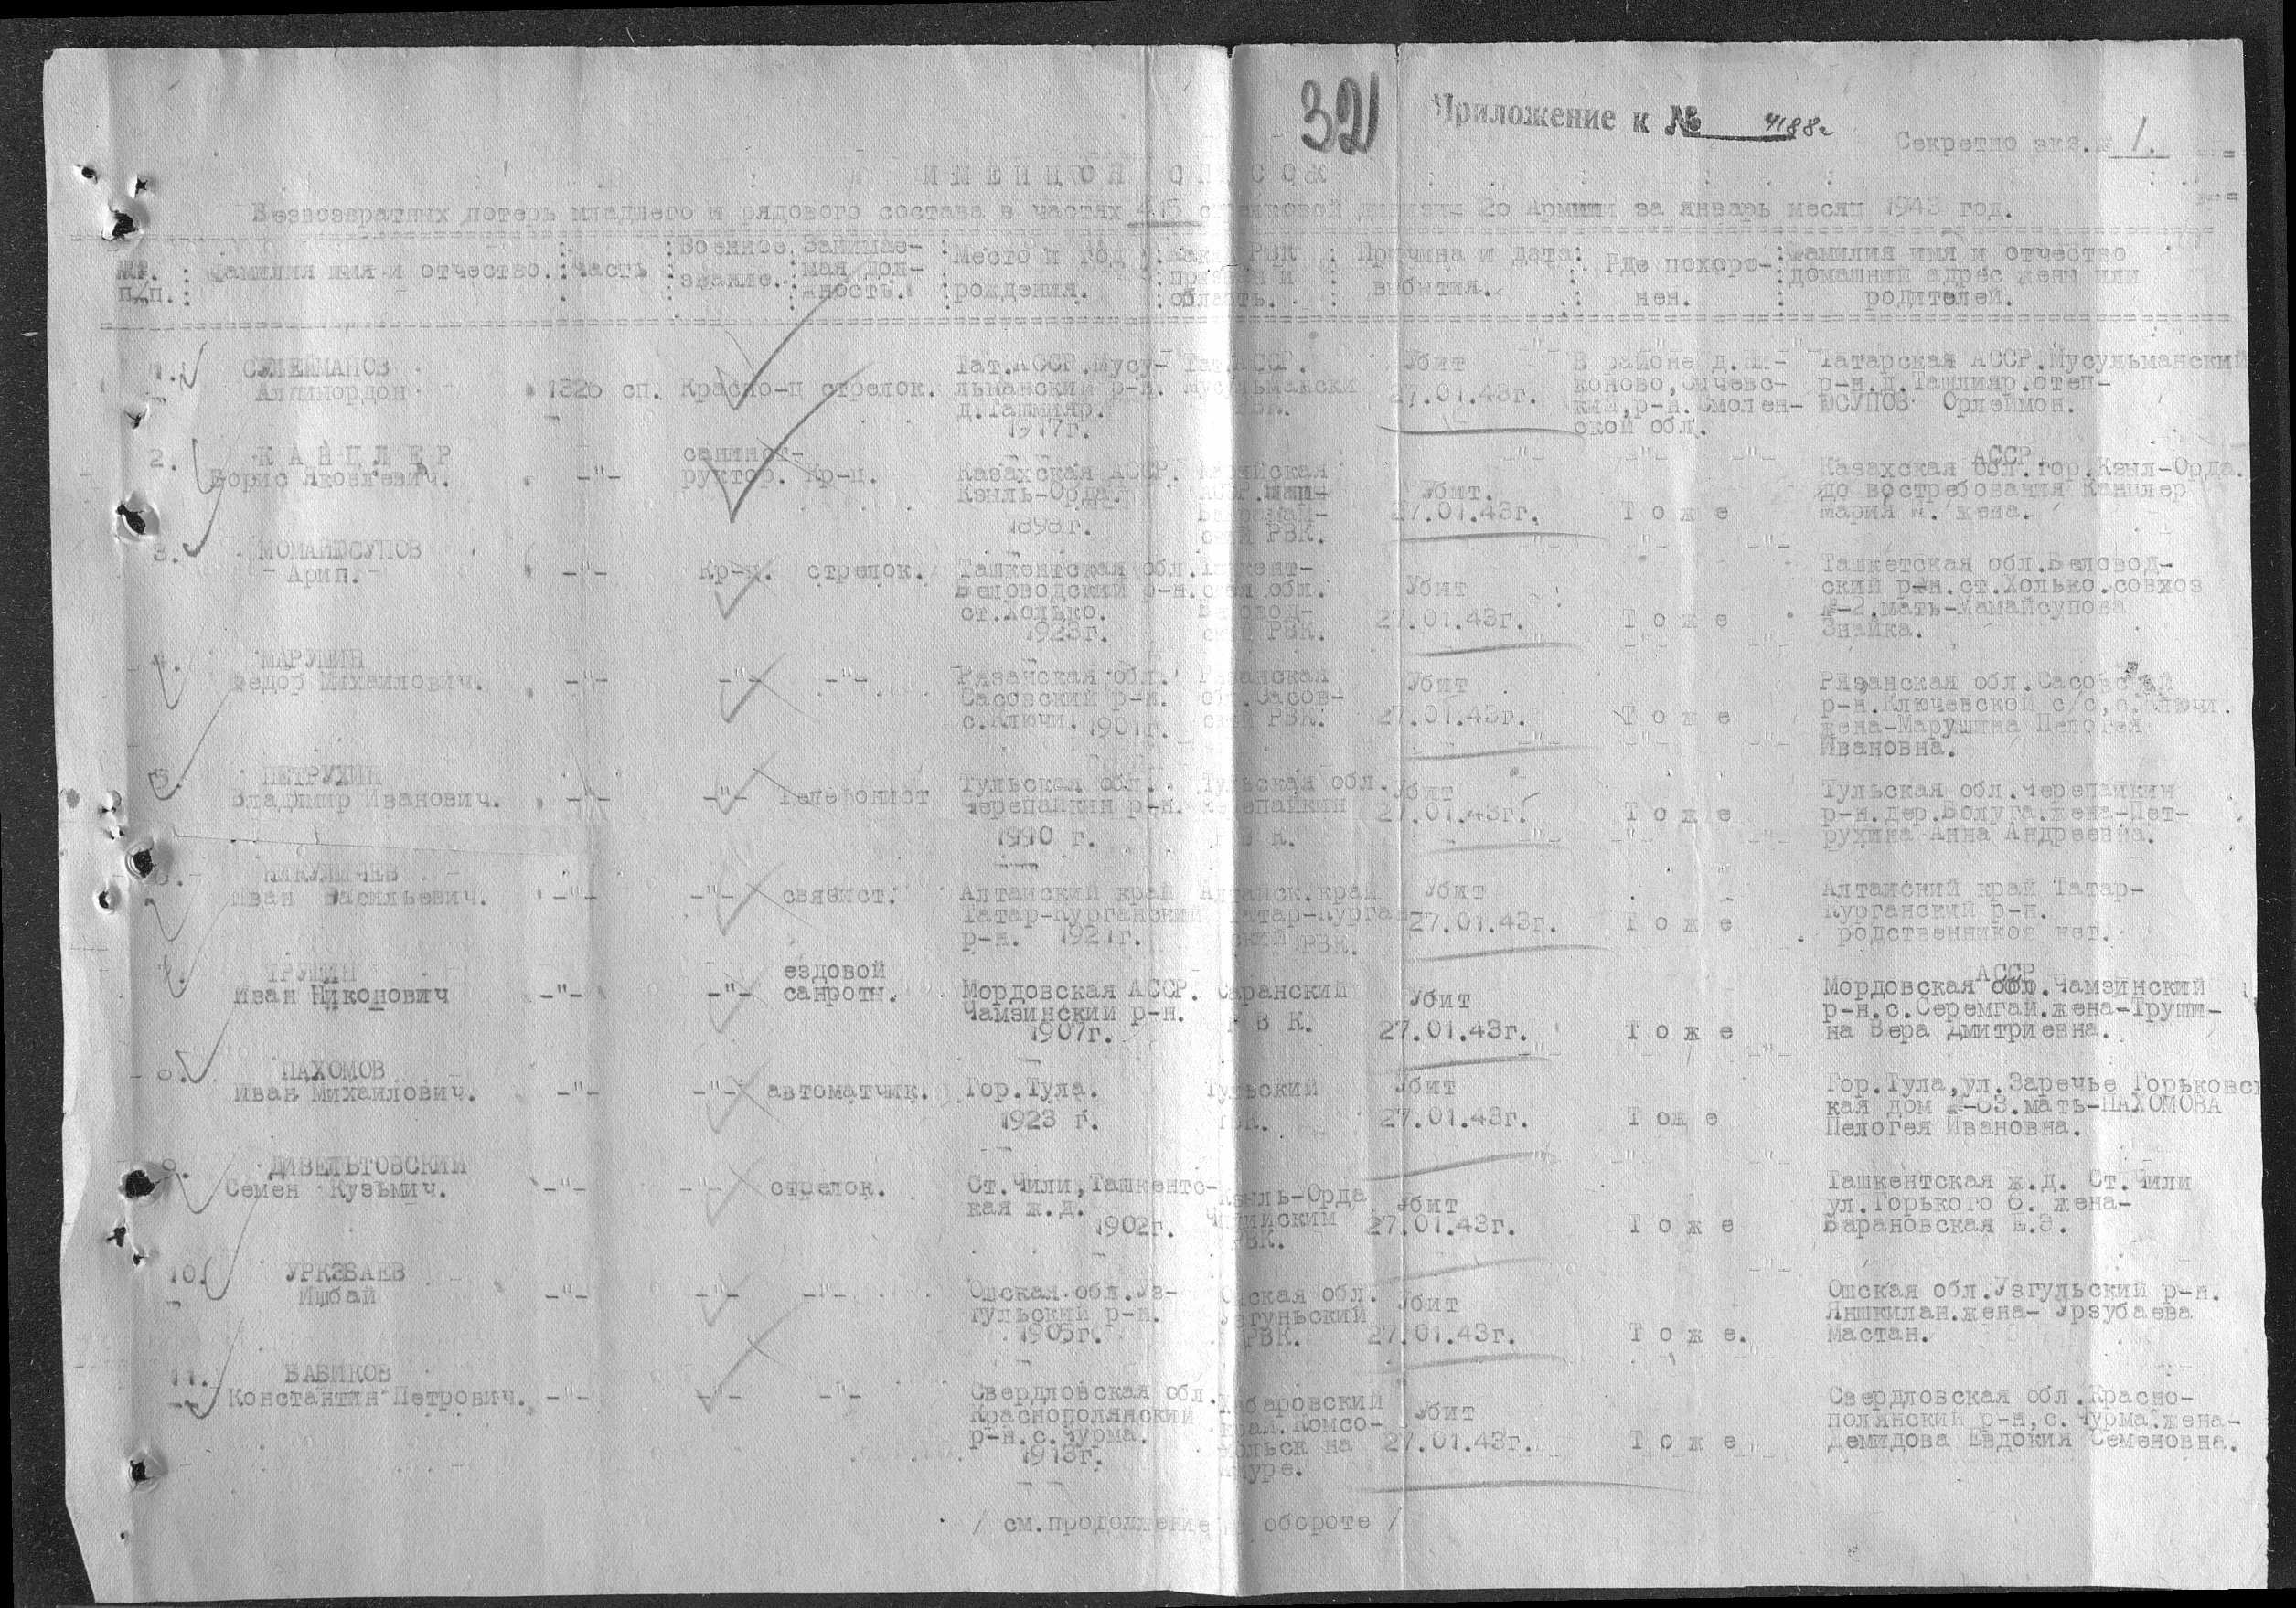 32
Приложение к № 4188с
Секретно экз. № 1.
ИМЕННОЙ СПИСОК
Безвозвратных потерь младшего и рядового состава в частях 415 стрелковой дивизии 20 Армии за январь месяц 1943 год.
№№ п/п. : Фамилия имя и отчество. : Часть : Военное звание. : Занимае-
мая дол-
жность. : Место и год
рождения. : Каким РВК
призван и
область. : Причина и дата
выбытия. : Где похоро-
нен. : Фамилия имя и отчество
домашний адрес жены или
родителей.
1. СУЛЕЙМАНОВ
Алпимордон 1326 сп. Красно-ц стрелок.
Тат.АССР.Мусу-
льманский р-н.
д.Ташмияр.
1917г.
Тат.АССР.
Мусульмански
РВК.
Убит
27.01.43г.
В районе д.Ни-
коново, Сычевс-
кий, р-н. Смолен-
ской обл.
Татарская АССР.Мусульманский
р-н.д.Ташлияр.отец-
ЮСУПОВ Орлеймон.
2. КАНЦЛЕР
Борис Яковлевич. -"-
санинст-
руктор. Кр-ц.
Казахская АССР.
Кзыль-Орда.
1898г.
РВК.
Убит.
27.01.43г.
Тоже
АССР
Казахская обл.гор.Кзыл-Орда.
до востребования Канцлер
Мария М. жена.
3. МОМАЙЮСУПОВ
Арип. -"- Кр-ц. стрелок.
Ташкентская обл.
Беловодский р-н.
ст.Холько.
1923г.
Ташкент-
ская обл.
Беловод-
ский РВК.
Убит
27.01.43г.
Тоже
Ташкетская обл.Беловод-
ский р-н.ст.Холько.совхоз
№-2.мать-Мамайсупова
Знайка.
4. МАРУШИН
Федор Михайлович. -"- -"- -"-
Рязанская обл.
Сасовский р-н.
с.Ключи. 1901г.
Рязанская
обл.Сасов-
ский РВК.
Убит
27.01.43г.
Тоже
Рязанская обл.Сасовский
р-н.Ключевской с/с,с.Ключи.
жена-Марушина Пелогея
Ивановна.
5. ПЕТРУХИН
Владимир Иванович. -"- -"- Телефонист
Тульская обл.
Черепайкин р-н.
1910 г.
Тульская обл.
Черепайкин
РВК.
Убит
27.01.43г.
Тоже
Тульская обл.Черепайкин
р-н.дер.Болуга.жена-Пет-
рухина Анна Андреевна.
6. НИКУЛИЧЕВ
Иван Васильевич. -"- -"- связист.
Алтайский край
Татар-Курганский
р-н. 1921г.
Алтайск.край
Татар-Курган
ский РВК.
Убит
27.01.43г.
Тоже
Алтайский край Татар-
Курганский р-н.
родственников нет.
7. ТРУШИН
Иван Никонович -"- -"-
ездовой
санроты.
Мордовская АССР.
Чамзинский р-н.
1907г.
Саранский
Р В К.
Убит
27.01.43г.
Тоже
АССР
Мордовская обл.Чамзинский
р-н.с.Серемгай.жена-Труши-
на Вера Дмитриевна.
8. ПАХОМОВ
Иван Михайлович. -"- -"- автоматчик.
Гор.Тула.
1923 г.
Тульский
ГВК.
Убит
27.01.43г.
Тоже
Гор.Тула,ул.Заречье Горьковс
кая дом №-63.мать-ПАХОМОВА
Пелогея Ивановна.
9. ДИВЕЛЬТОВСКИЙ
Семен Кузьмич. -"- -"- стрелок.
Ст.Чили,Ташкентс-
кая ж.д.
1902г.
Кзыль-Орда
Чилийским
РВК.
Убит
27.01.43г.
Тоже
Ташкентская ж.д. Ст.Чили
ул.Горького 6. жена-
Барановская Е.Э.
10. УРКЗБАЕВ
Ишбай -"- -"- -"-
Ошская обл.Уз-
гульский р-н.
1905г.
Ошская обл.
Узгуньский
РВК.
Убит
27.01.43г.
Тоже.
Ошская обл.Узгульский р-н.
Яншкилан.жена- Урзубаева
Мастан.
11. БАБИКОВ
Константин Петрович. -"- -"- -"-
Свердловская обл.
Краснополянский
р-н.с.Чурма.
1913г.
Хабаровский
край.Комсо-
мольск на
Амуре.
Убит
27.01.43г.
Тоже
Свердловская обл.Красно-
полянский р-н,с.Чурма.жена-
Демидова Евдокия Семеновна.
/ см.продолжение на обороте /